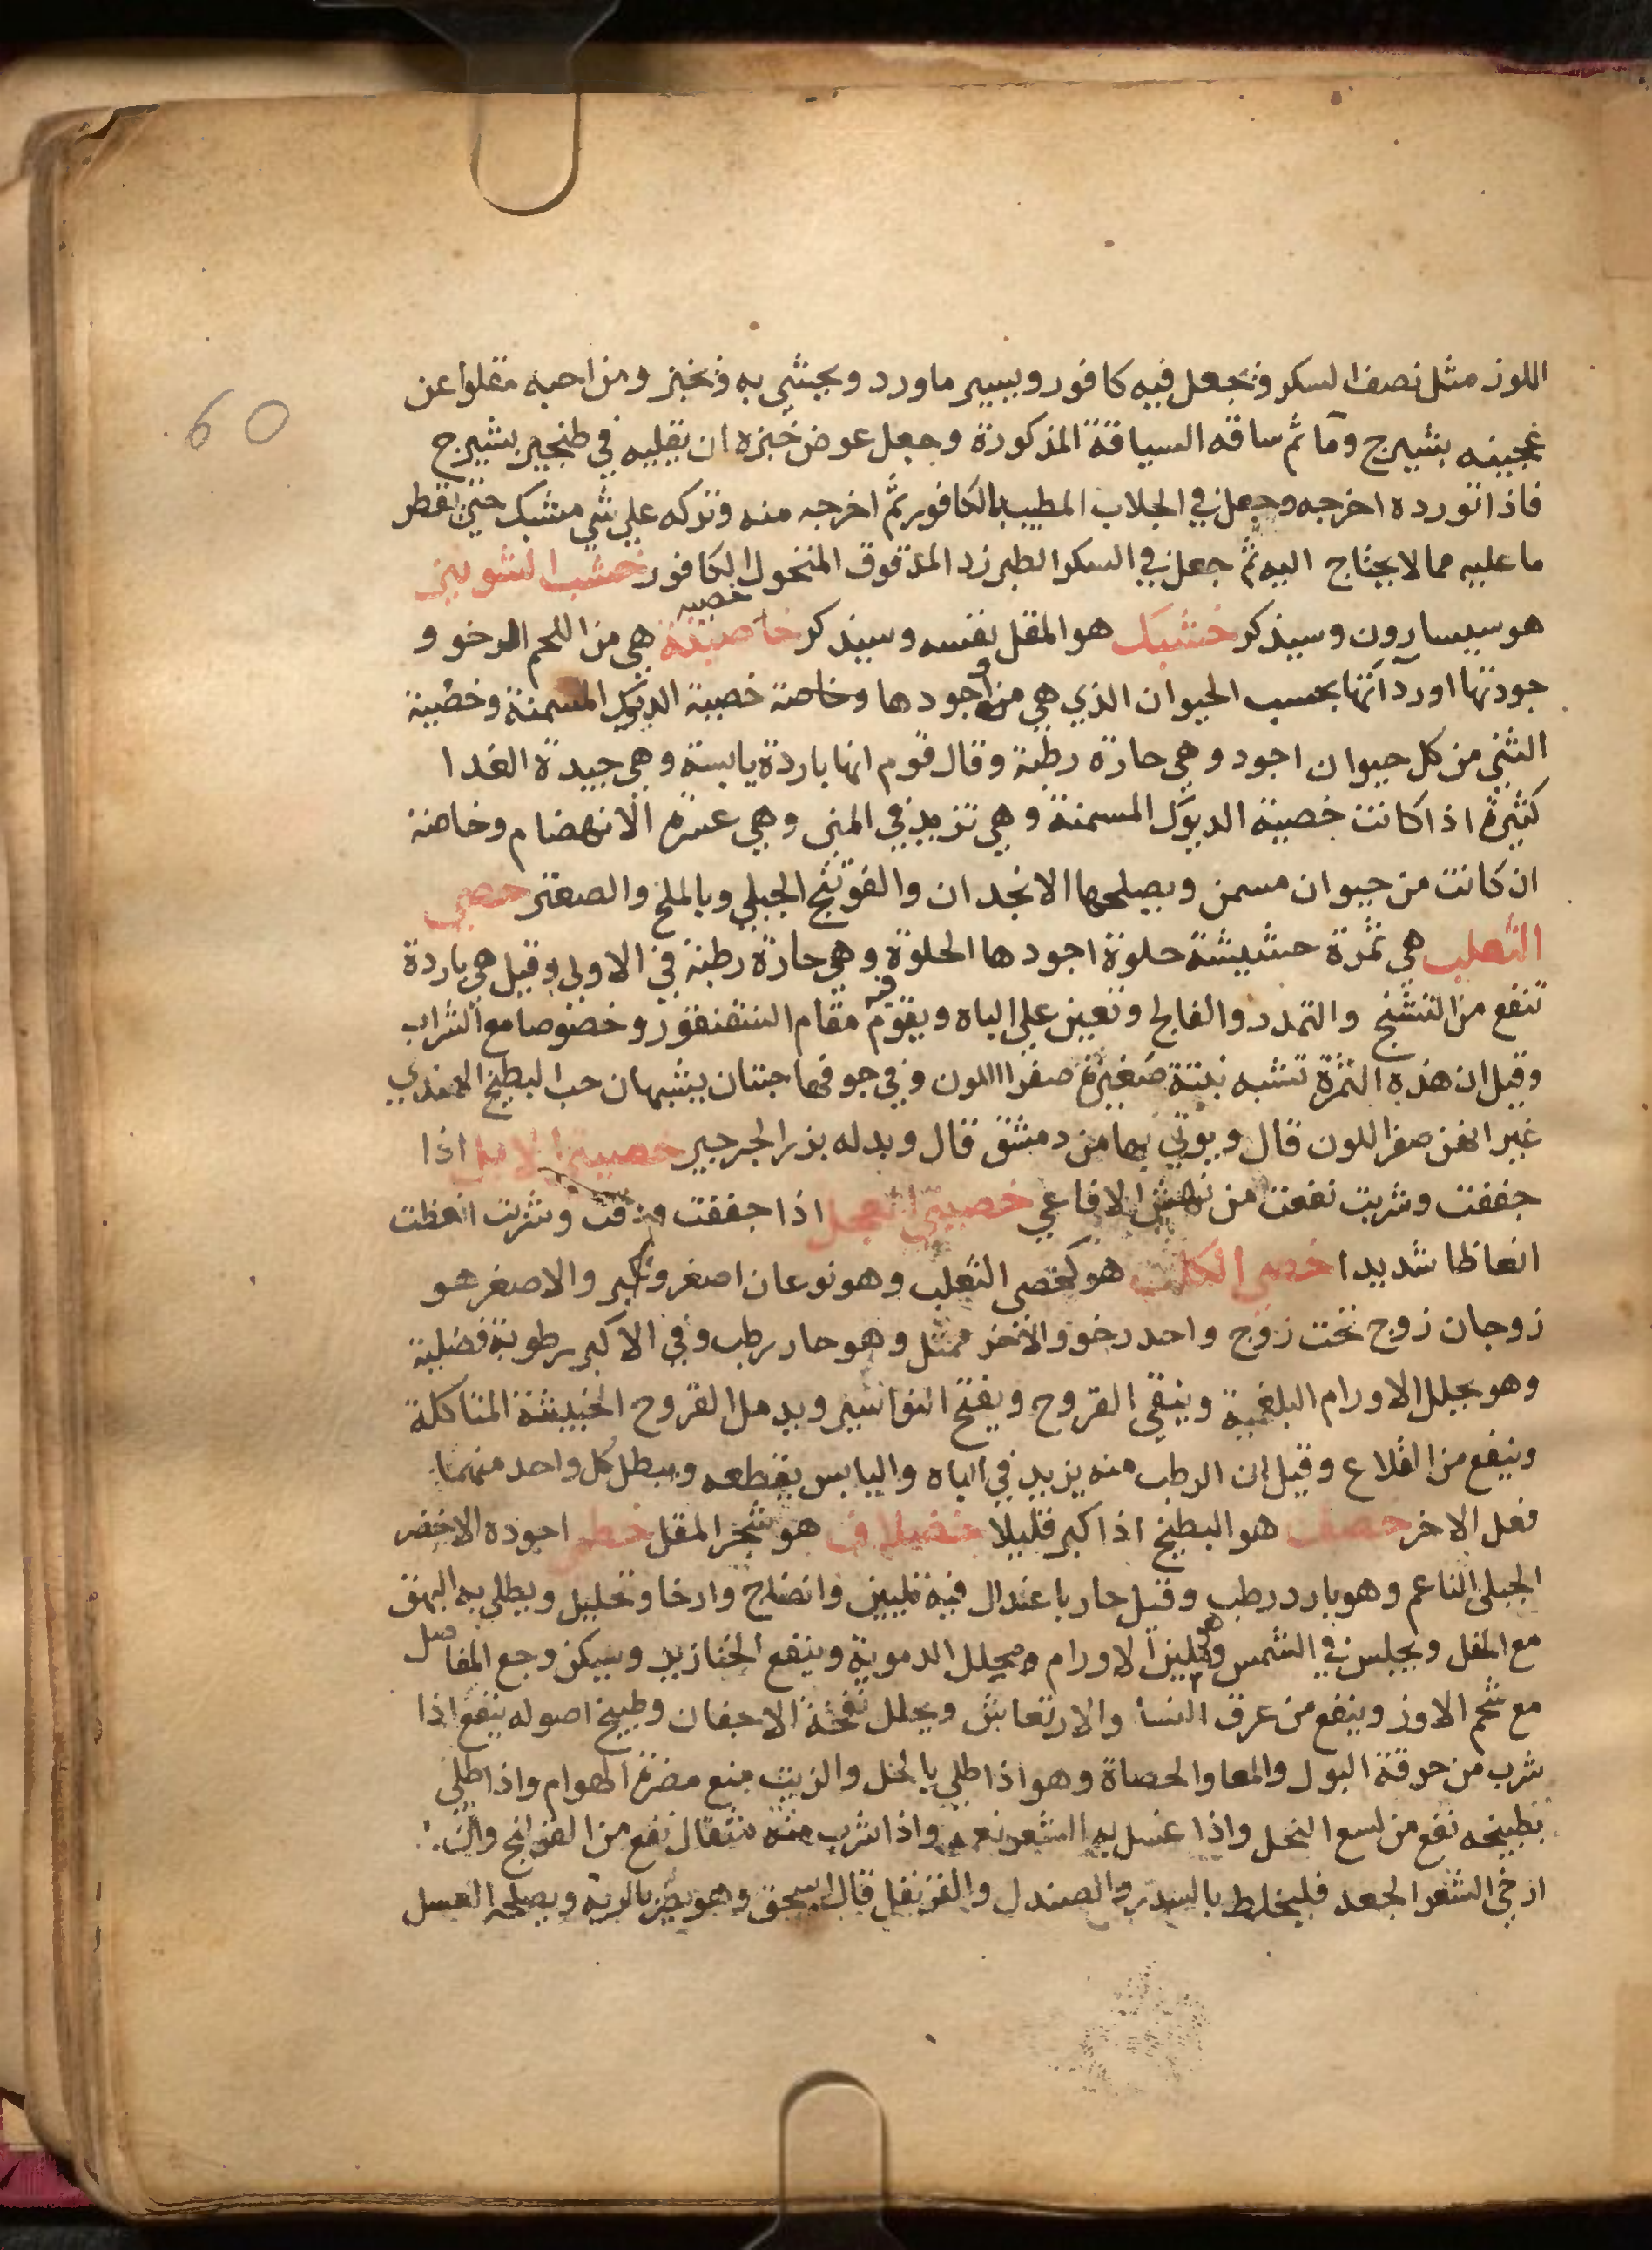 اللوز مثل نصف السكر ونجعل فيه كافور ويسير ماورد ويحشى به ونخبز ومن احبه مقلوا عن
عجينه بشيرج وما ثم ساقه السياقة المذكورة وجعل عوض خبزه ان يقليه في طنجير بشيرج
فاذا تورده اخرجه وجعل في الجلاب المطيب بالكافور ثم اخرجه منه وتركه على شي مشبك حتى تقطر
ما عليه مما لا يحتاج اليه ثم جعل في السكر الطبرزد المدقوق المنخول الكافور خشب الشونيز
هو سيسارون وسيذكر خشبك هو المقل نفسه وسيذكر خاصيتة خصيه هي من اللحم الرخو و
جودتها او رداتها بحسب الحيوان الذي هي منه واجودها وخاصة خصية الديوك المسمنة وخصية
الثني من كل حيوان اجود وهي حارة رطبة وقال قوم انها باردة يابسة وهي جيدة الغدا
كثيرة اذا كانت خصية الديوك المسمنة وهي تزيد في المنى وهي عسرة الانهضام وخاصة
ان كانت من حيوان مسمن ويصلحها الانجدان والفوتنج الجبلي وبالملح والصعتر خصى
الثعلب هي ثمرة حشيشة حلوة اجودها الحلوة وهي حارة رطبة في الاولى وقيل هي باردة
تنفع من التشنج والتمدد والفالج وتعين على الباه ويقوم فيه مقام السقنقور وخصوصا مع الشراب
وقيل ان هذه الثمرة تشبه نبتة صغيرة صفرا اللون وفي جوفها حبتان يشبهان حب البطيخ الهندي
غير انهن صفر اللون قال ويوتي بها من دمشق قال وبدله بزر الجرجير خصية الايل اذا
جففت وشربت نفعت من نهش الافاعي خصيتى العجل اذا جففت ودقت وشربت انعظت
انعاظا شديدا خصى الكلب هو كخصى الثعلب وهو نوعان اصغر واكبر والاصغر هو
زوجان زوج تحت زوج واحد رخو والاخر ممتل وهو حار رطب وفي الاكبر رطوبة فضلية
وهو يحلل الاورام البلغمية وينقي القروح ويفتح النواسير ويدمل القروح الخبيثة المتاكلة
وينفع من القلاع وقيل ان الرطب منه يزيد في الباه واليابس يقطعه ويبطل كل واحد منهما
فعل الاخر خصف هو البطيخ اذا كبر قليلا خضلاف هو شجر المقل خطمي اجوده الاخضر
الجبلي الناعم وهو بارد رطب وقيل حار باعتدال فيه تليين وانضاج وارخا وتحليل ويطلى به البهق
مع الخل ويجلس في الشمس وهو يلين الاورام ويحلل الدموية وينفع الخنازير ويسكن وجع المفاصل
مع شحم الاوز وينفع من عرق النسا والارتعاش ويحلل نفخة الاجفان وطبيخ اصوله ينفع اذا
شرب من حرقة البول والمعا والحصاة وهو اذا طلي بالخل والزيت منع مضرة الهوام واذا طلي
بطبيخه نفع من لسع النحل واذا غسل به الشعر نعمه واذا شرب منه مثقال نفع من القولنج وان
ارخى الشعر الجعد فليخلط بالسدر والصندل والقرنفل قال اسحق وهو يضر بالرية ويصلحه العسل
60